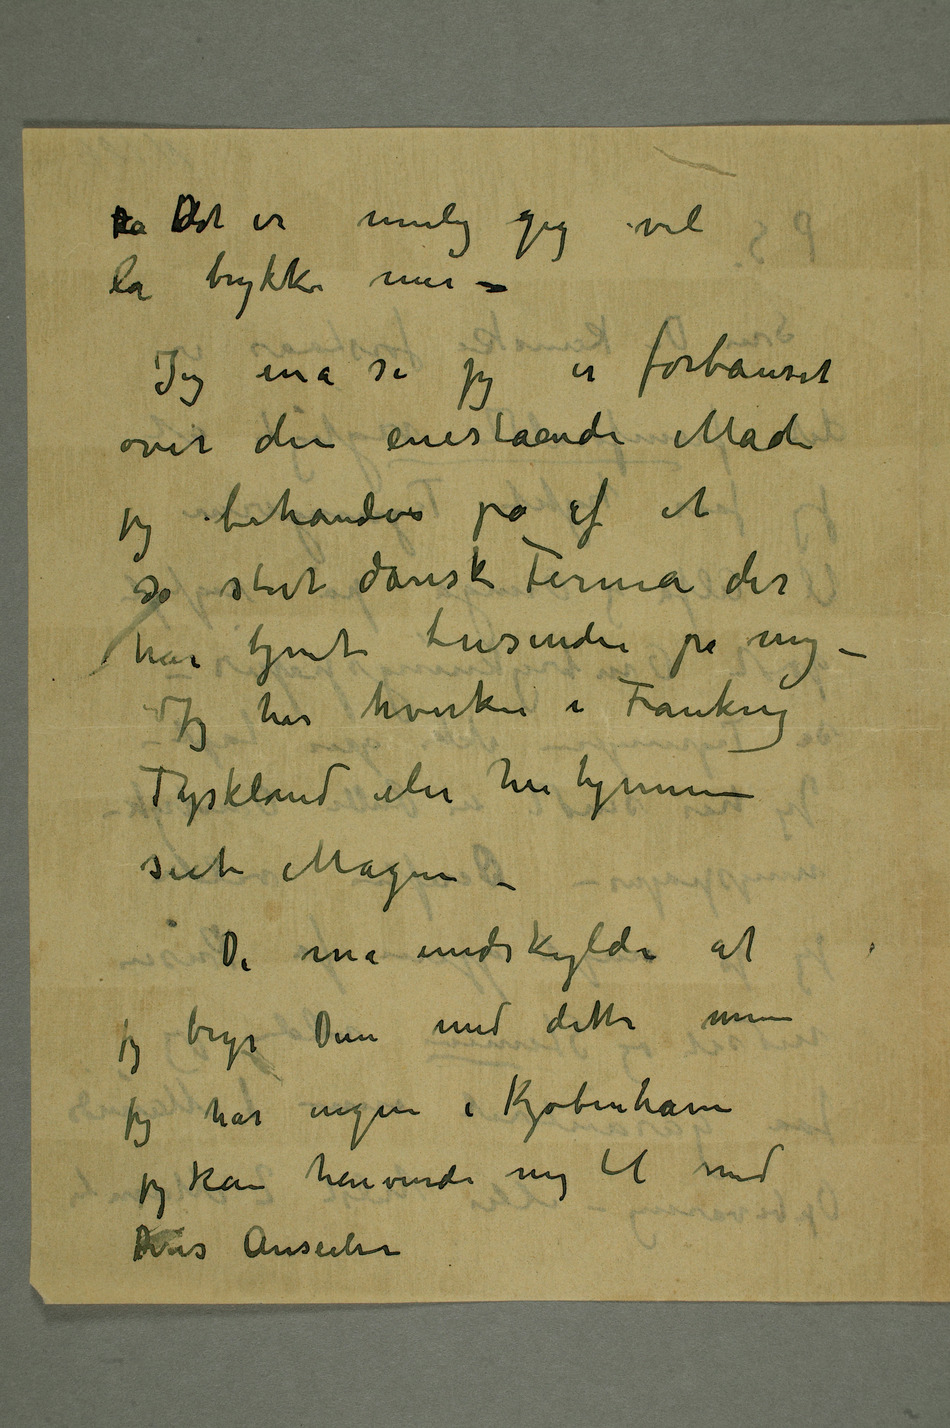 Det er mulig jeg vil
la trykke mer –
Jeg må si jeg er forbauset
over den enestaaende Måde
jeg behandles på af et
så stort dansk Firma der
har tjent tusinder på mig –
Jeg har hverken i Frankrig
Tyskland eller her hjemme
seet Magen –
De må undskylde at
jeg bryr Dem med dette men
jeg har ingen i Kjøbenhavn
jeg kan henvende mig til med
Deres Anseelse